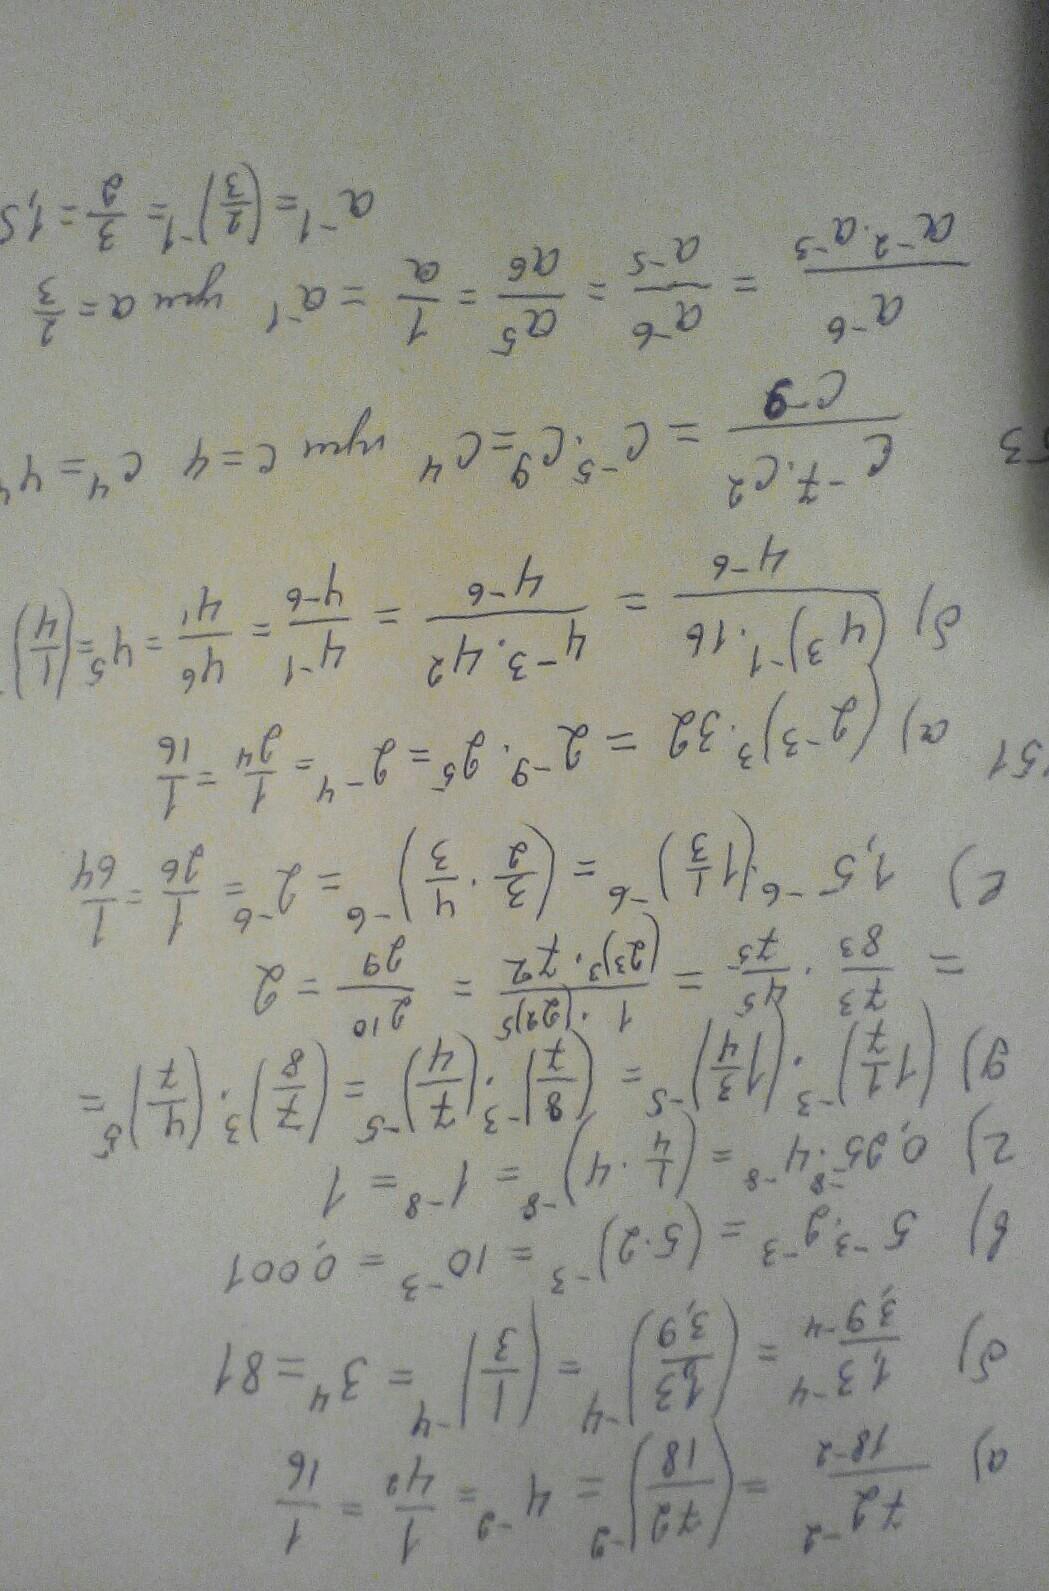 а) 72⁻²/18⁻² = (72/18)⁻² = 4⁻² = 1/4² = 1/16
б) 1,3⁻⁴/3,9⁻⁴ = (1,3/3,9)⁻⁴ = (1/3)⁻⁴ = 3⁴ = 81
в) 5⁻³·2⁻³ = (5·2)⁻³ = 10⁻³ = 0,001
г) 0,25⁻⁸·4⁻⁸ = (1/4·4)⁻⁸ = 1⁻⁸ = 1
д) (1 1/7)⁻³·(1 3/4)⁻⁵ = (8/7)⁻³·(7/4)⁻⁵ = (7/8)³·(4/7)⁵ =
= 7³/8³·4⁵/7⁵ = 1·(2²)⁵/(2³)³·7² = 2¹⁰/2⁹ = 2
е) 1,5⁻⁶·(1 1/3)⁻⁶ = (3/2·4/3)⁻⁶ = 2⁻⁶ = 1/2⁶ = 1/64
51 а) (2⁻³)³·32 = 2⁻⁹·2⁵ = 2⁻⁴ = 1/2⁴ = 1/16
б) (4³)⁻¹·16/4⁻⁶ = 4⁻³·4²/4⁻⁶ = 4⁻¹/4⁻⁶ = 4⁶/4¹ = 4⁵ = (1/4)
53 c⁻⁷·c²/c⁻⁹ = c⁻⁵·c⁹ = c⁴ при c = 4 c⁴ = 4⁴
a⁻⁶/a⁻²·a⁻³ = a⁻⁶/a⁻⁵ = a⁵/a⁶ = 1/a = a⁻¹ при a = 2/3
a⁻¹ = (2/3)⁻¹ = 3/2 = 1,5